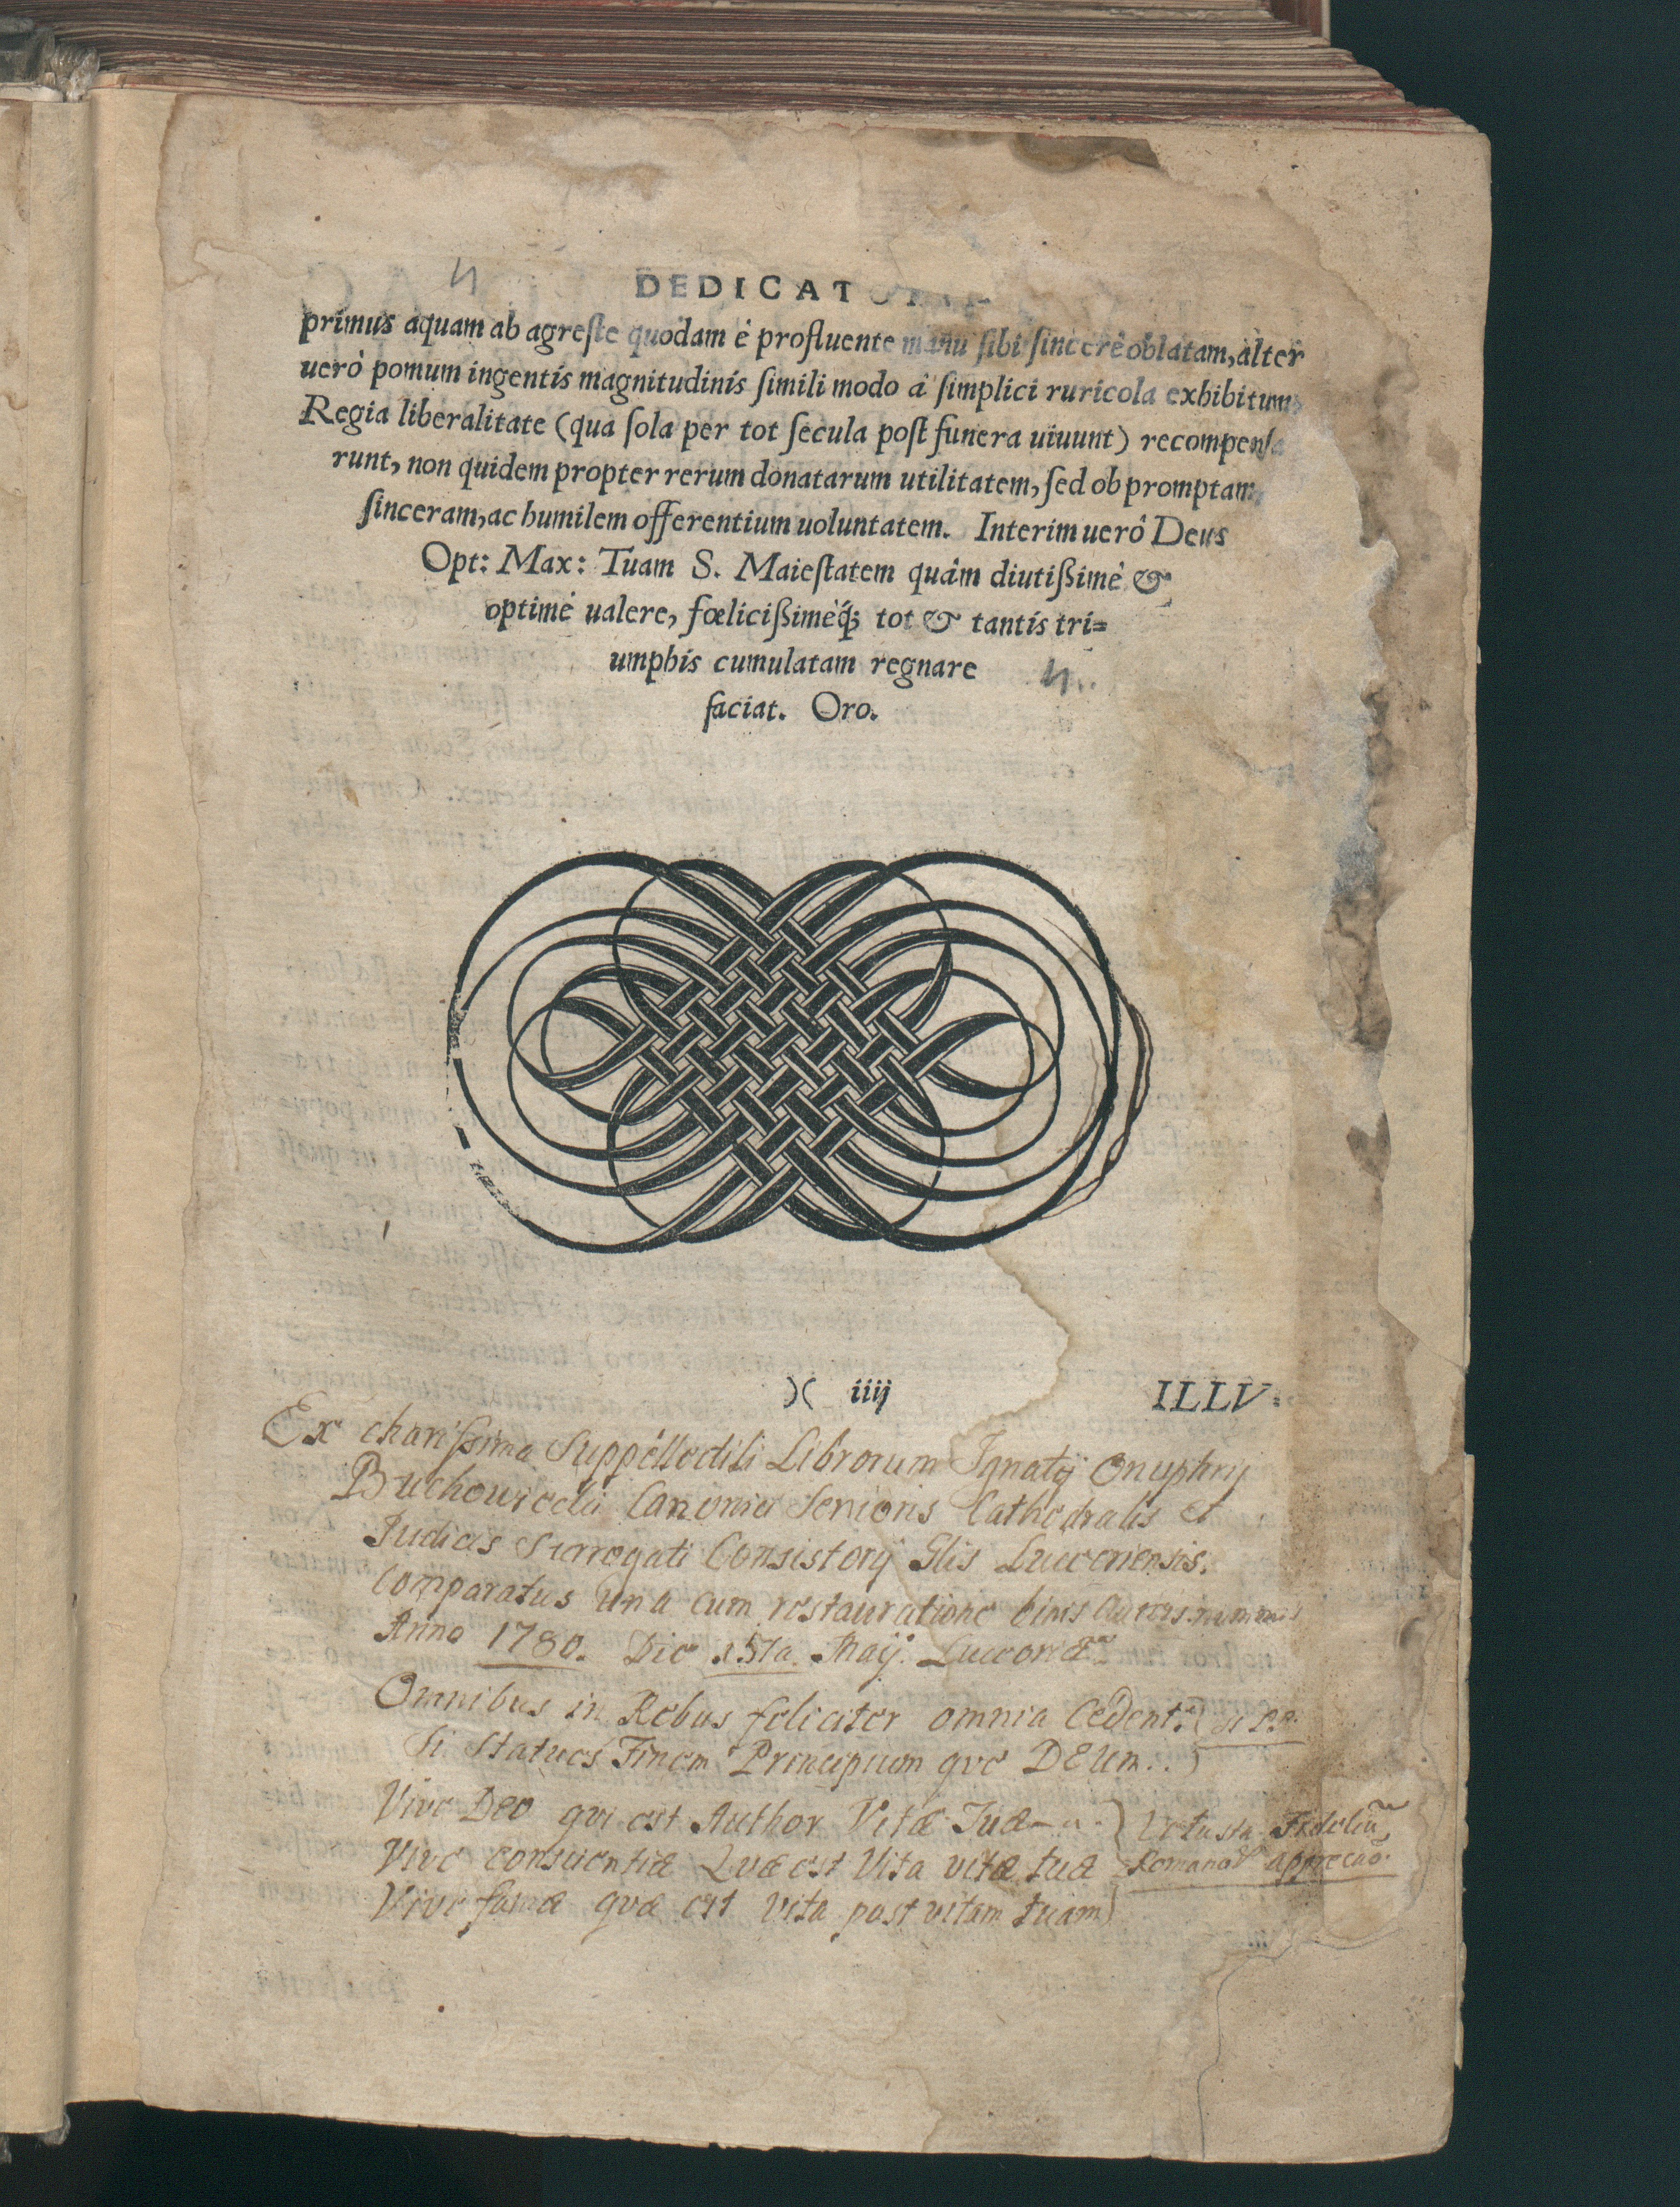 DEDICATORIA
primus aquam ab agreſte quodam è profluente manu ſibi ſincerè oblatam, alter
uerò pomum ingentis magnitudinis ſimili modo à ſimplici ruricola exhibitum
Regia liberalitate (qua ſola per tot ſecula poſt funera uiuunt) recompenſa
runt, non quidem propter rerum donatarum utilitatem, ſed ob promptam,
ſinceram, ac humilem offerentium uoluntatem. Interim uerò Deus
Opt: Max: Tuam S. Maieſtatem quàm diutiſsimè &
optimè ualere, fœliciſsimèq́; tot & tantis tri=
umphis cumulatam regnare
faciat. Oro.
)( iiij ILLV=
Ex charissima Suppellectili Librorum Ignatij Onuphrij
Canonici Senioris Cathedralis et
Judicis Surrogati Consistorij Glis Luceoriensis.
Comparatus una cum restauratione binis aureis nummis
Anno 1780. Die 15ta. Maij. Luceoriæ
Omnibus in Rebus feliciter omnia Cedent.
Si Statues Finem Principium qve DEUm..
Vive Deo qvi est Author Vitæ Tuæ
Vive conscientiæ Qvæ est Vita vitæ tuæ
Vive famæ qvæ est vita post vitam tuam
Vetusta Fideliũ